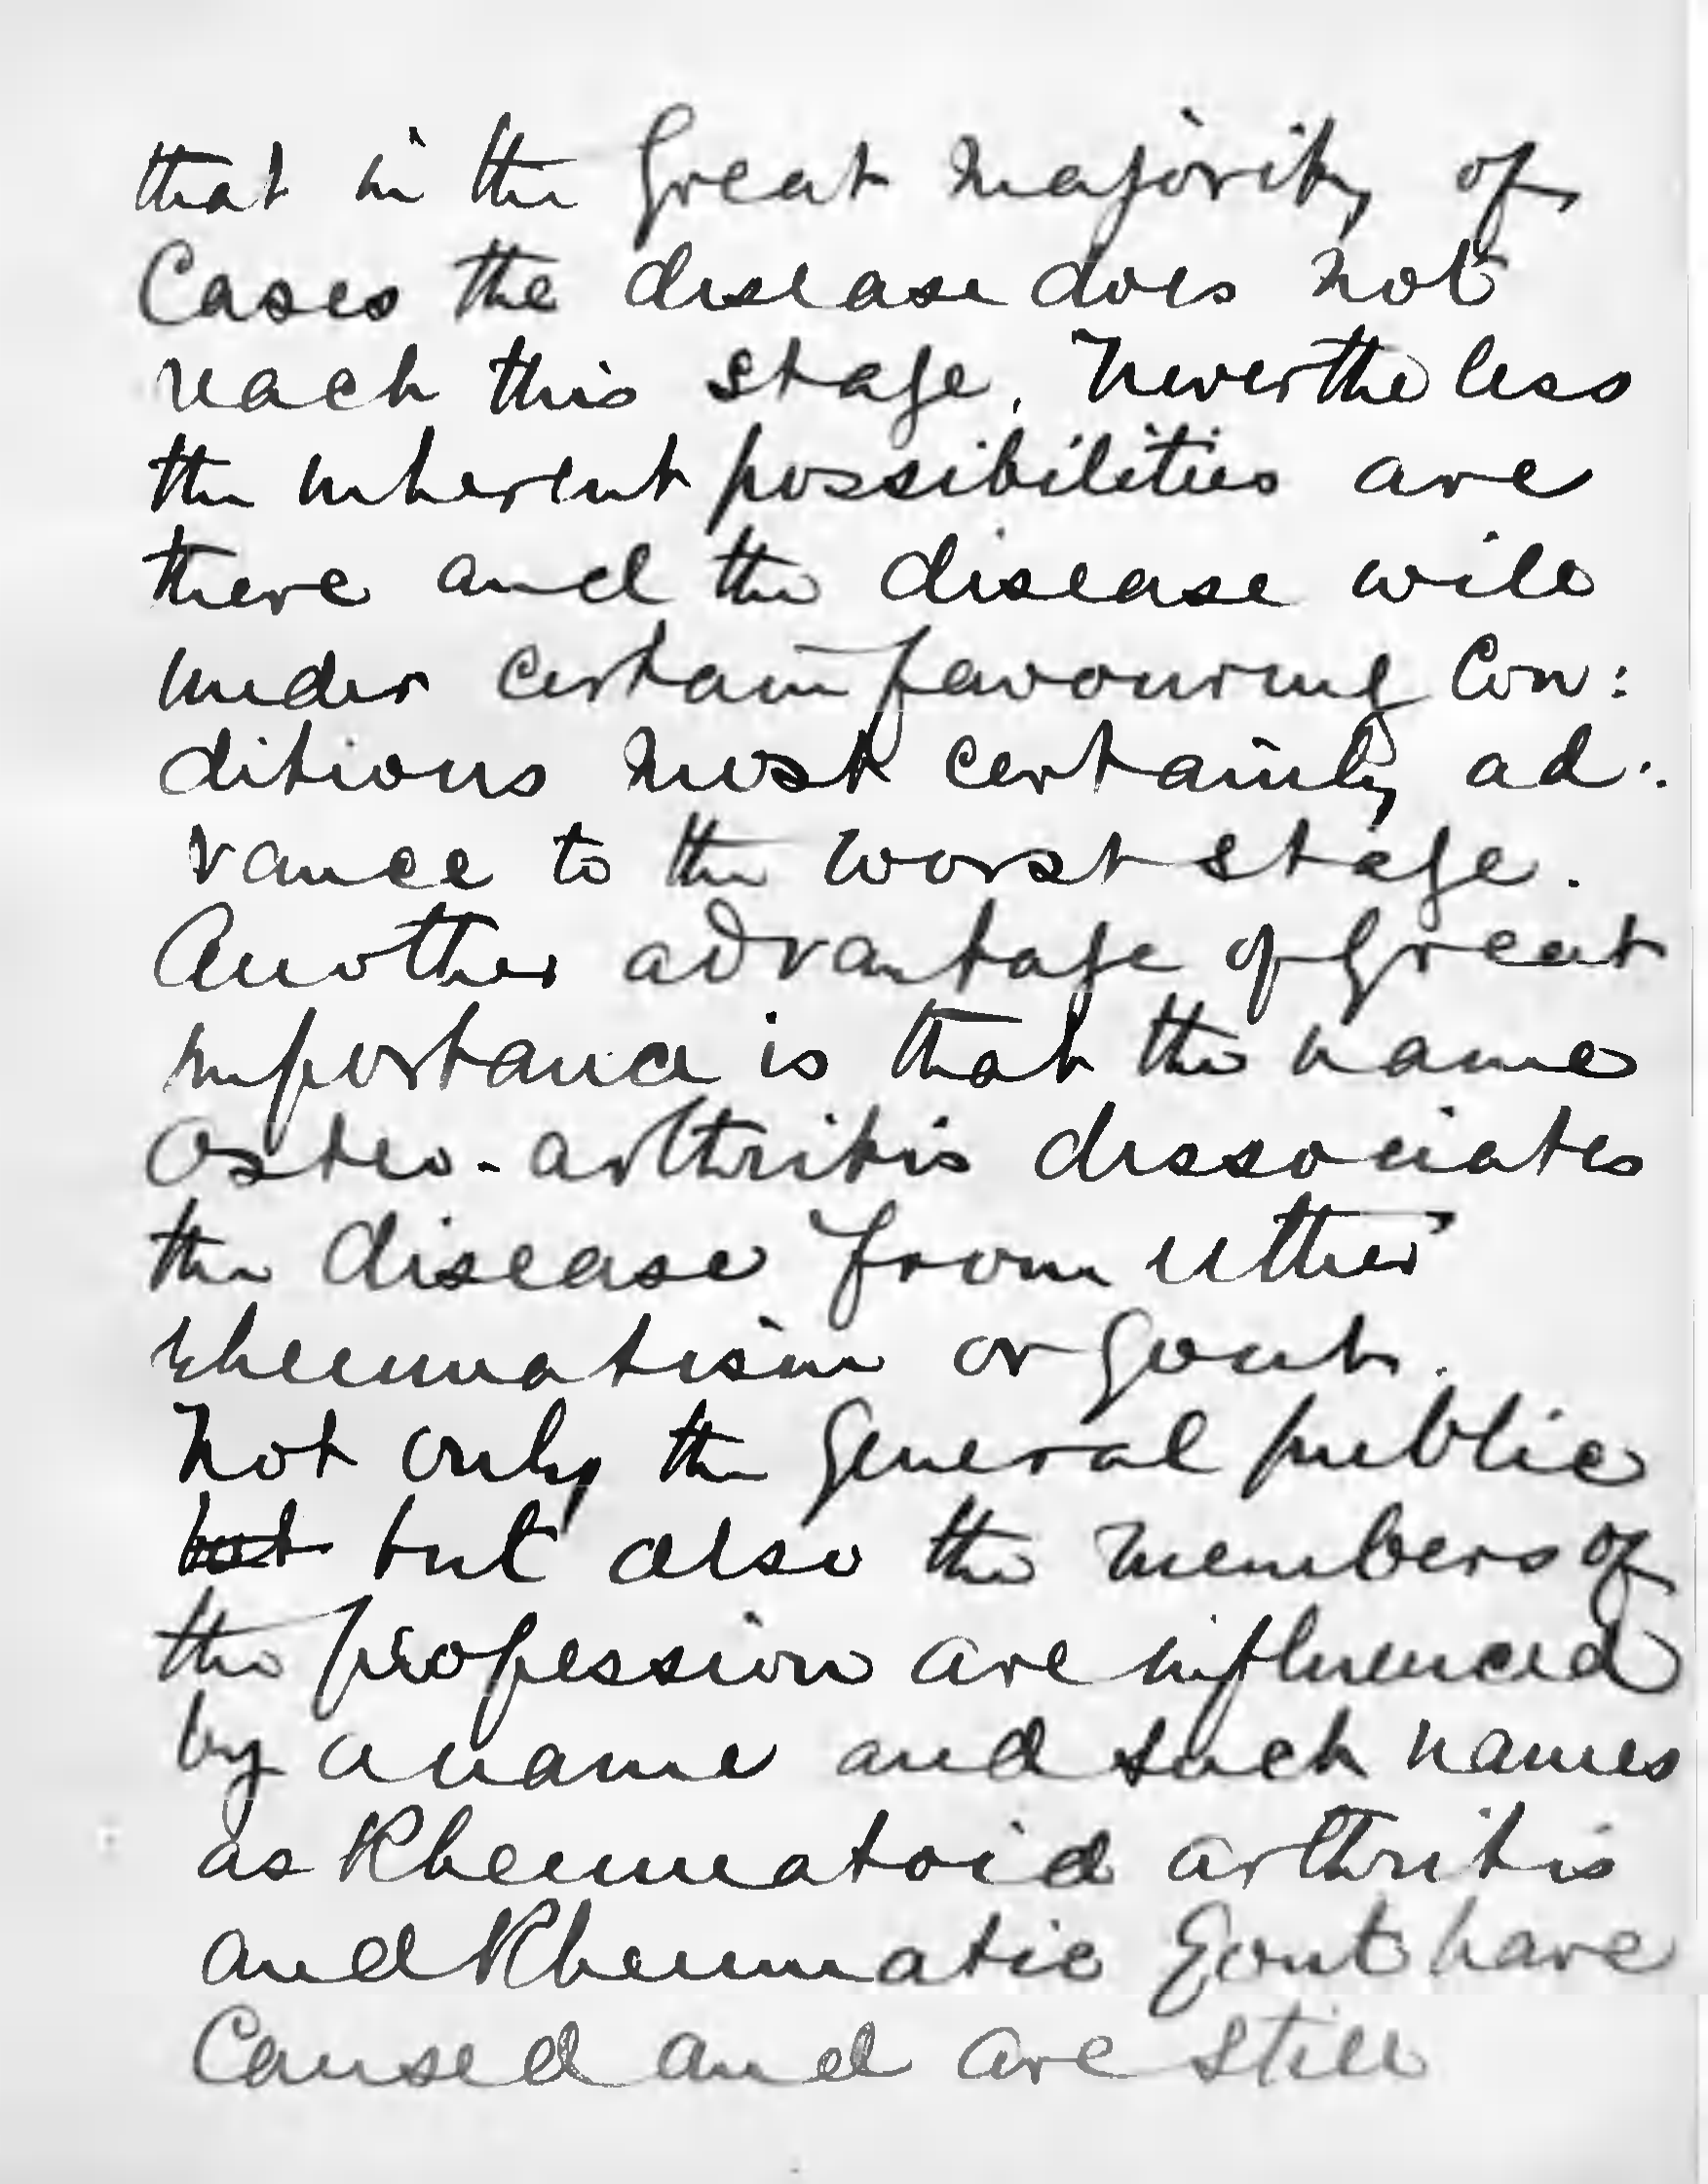 that in the great majority of
Cases the disease does not
reach this stage. Nevertheless
the inherent possibilities are
there and the disease will
under certain favouring Con:
ditions most certainly ad:
vance to the worst stage.
Another advantage of great
importance is that the name
Osteo-arthritis dissociates
the disease from either
rheumatism or gout.
Not only the general public
but but also the members of
the profession are influenced
by a name and such names
as Rheumatoid arthritis
and Rheumatic Gout have
Caused and are still